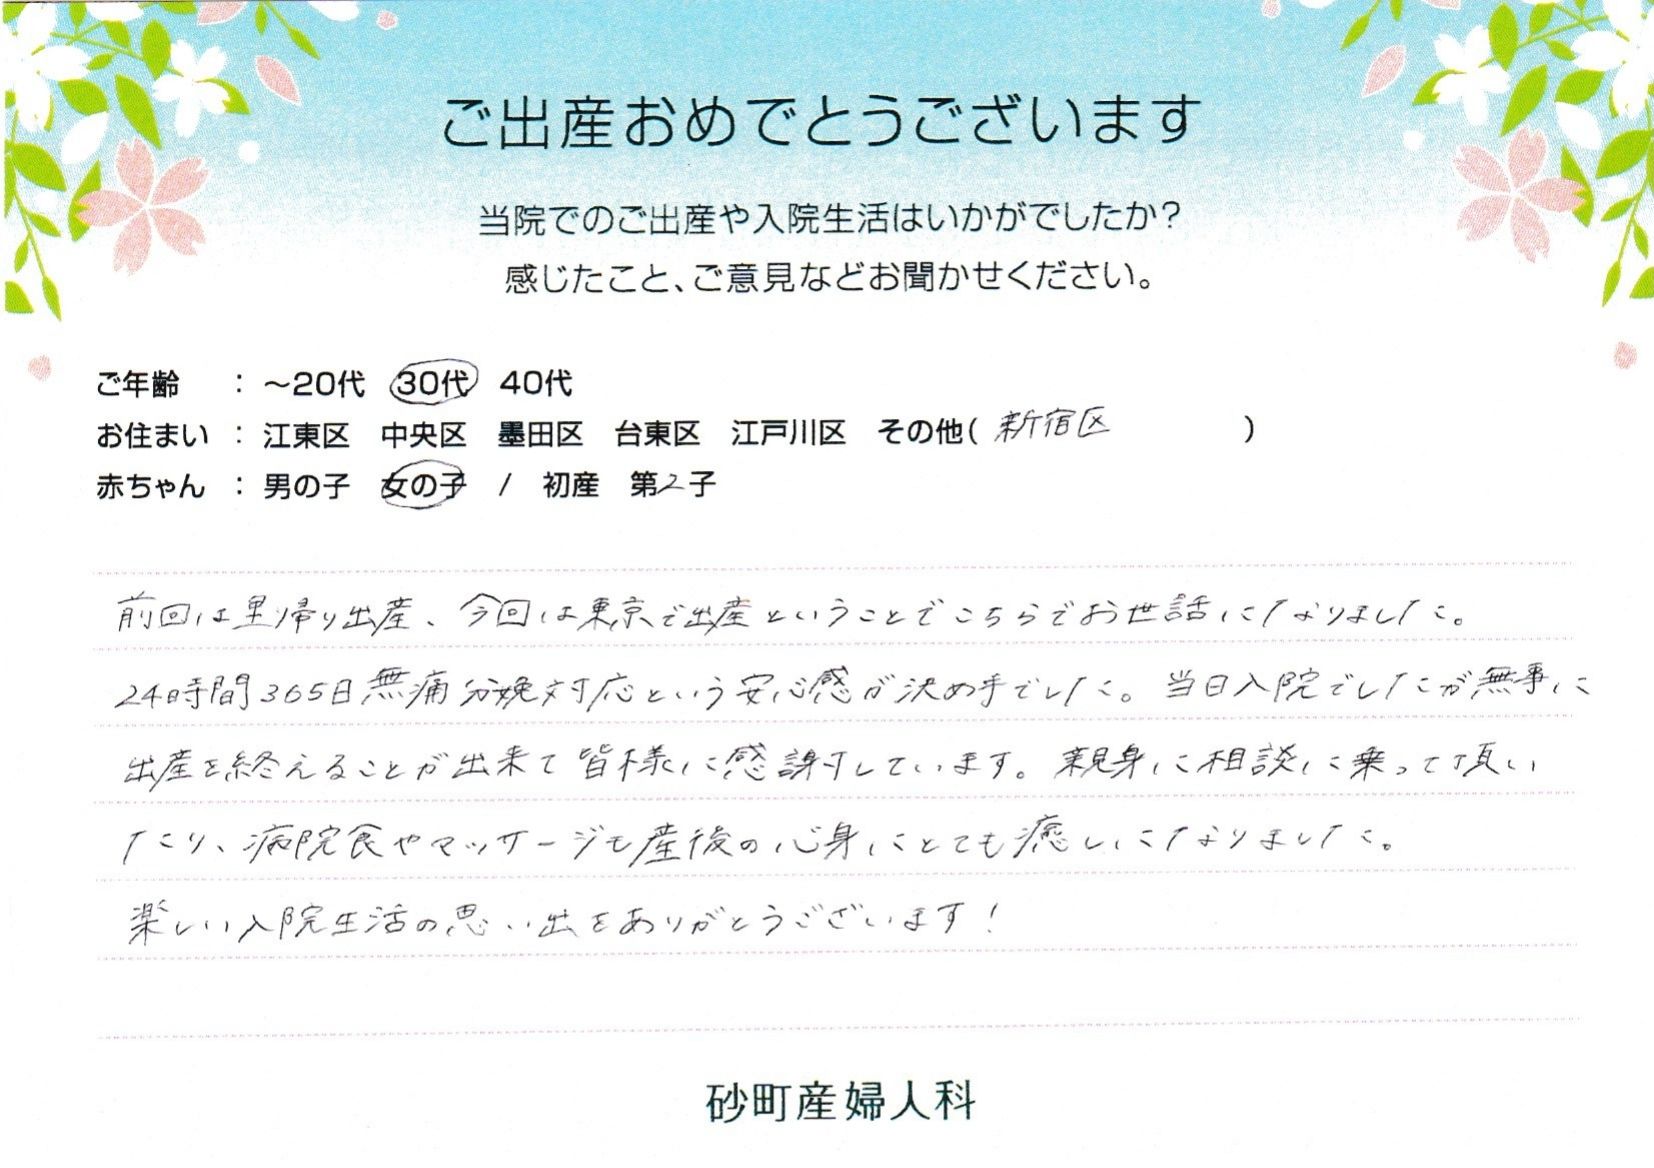 ご出産おめでとうございます
当院でのご出産や入院生活はいかがでしたか?
感じたこと、ご意見などお聞かせください。
ご年齢 : ～20代 30代 40代
お住まい : 江東区 中央区 墨田区 台東区 江戸川区 その他( 新宿区 )
赤ちゃん : 男の子 女の子 / 初産 第2子
前回は里帰り出産、今回は東京で出産ということでこちらでお世話になりました。
24時間365日無痛分娩対応という安心感が決め手でした。当日入院でしたが無事に
出産を終えることが出来て皆様に感謝しています。親身に相談に乗って頂い
たり、病院食やマッサージも産後の心身にとても癒しになりました。
楽しい入院生活の思い出をありがとうございます!
砂町産婦人科